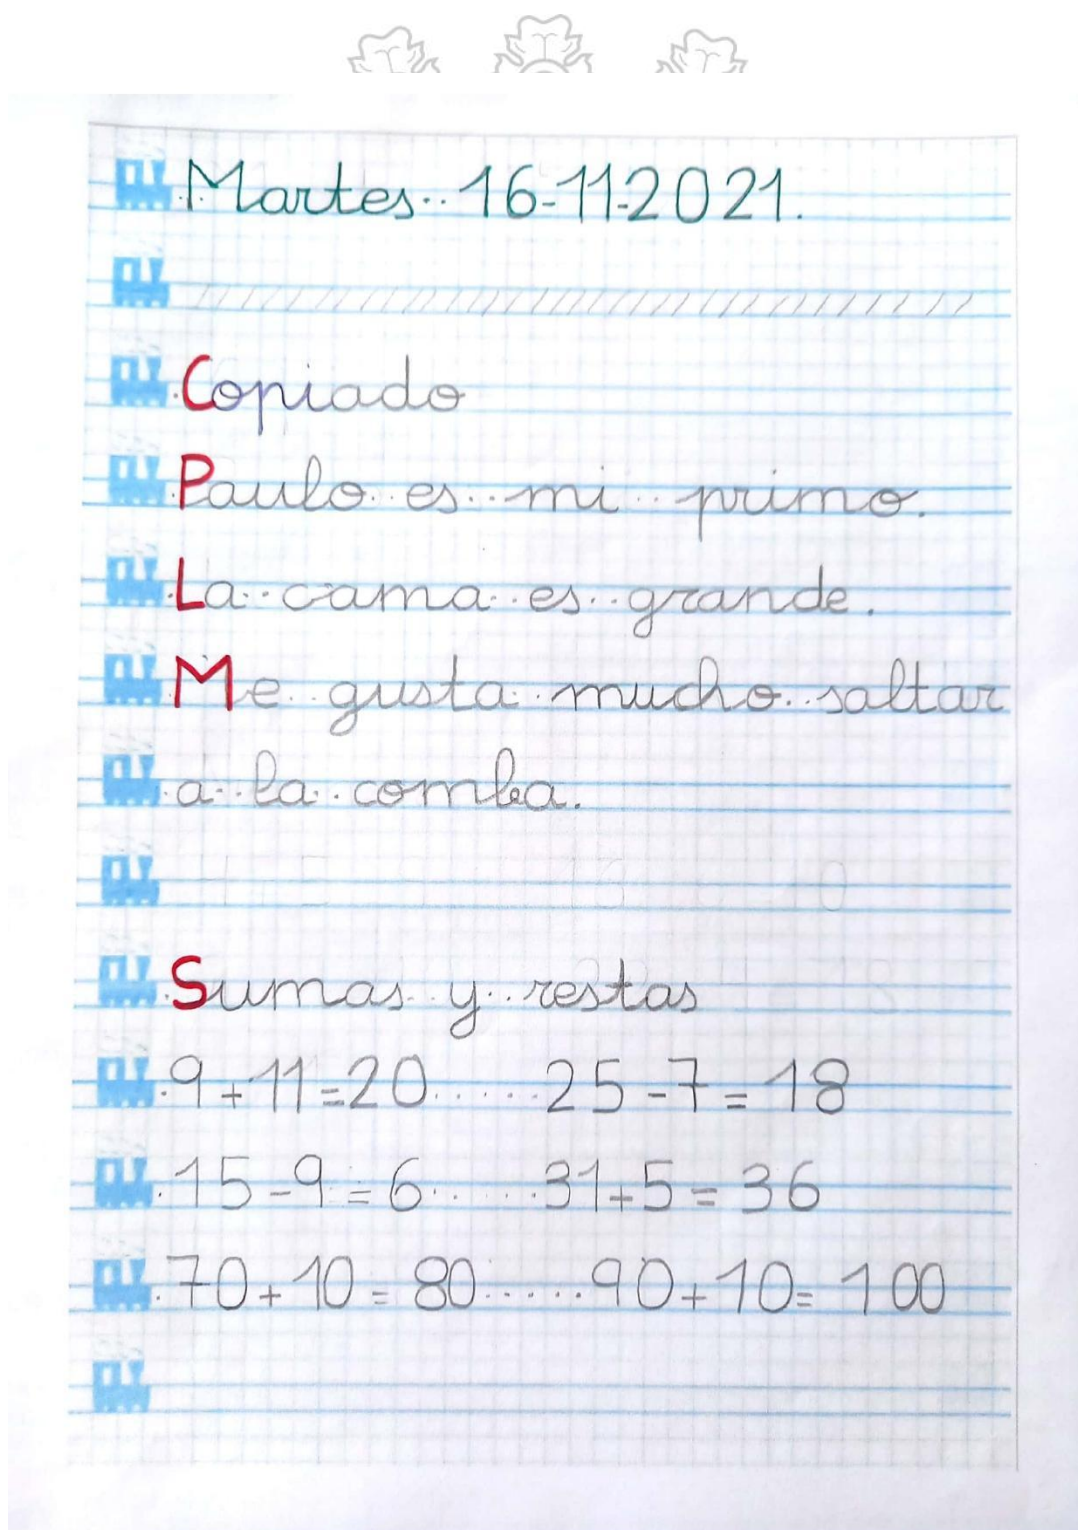 Martes 16-11-2021.
Copiado
Paulo es mi primo.
La cama es grande.
Me gusta mucho saltar
a la comba.
Sumas y restas
9+11=20 25-7=18
15-9=6 31+5=36
70+10=80 90+10=100